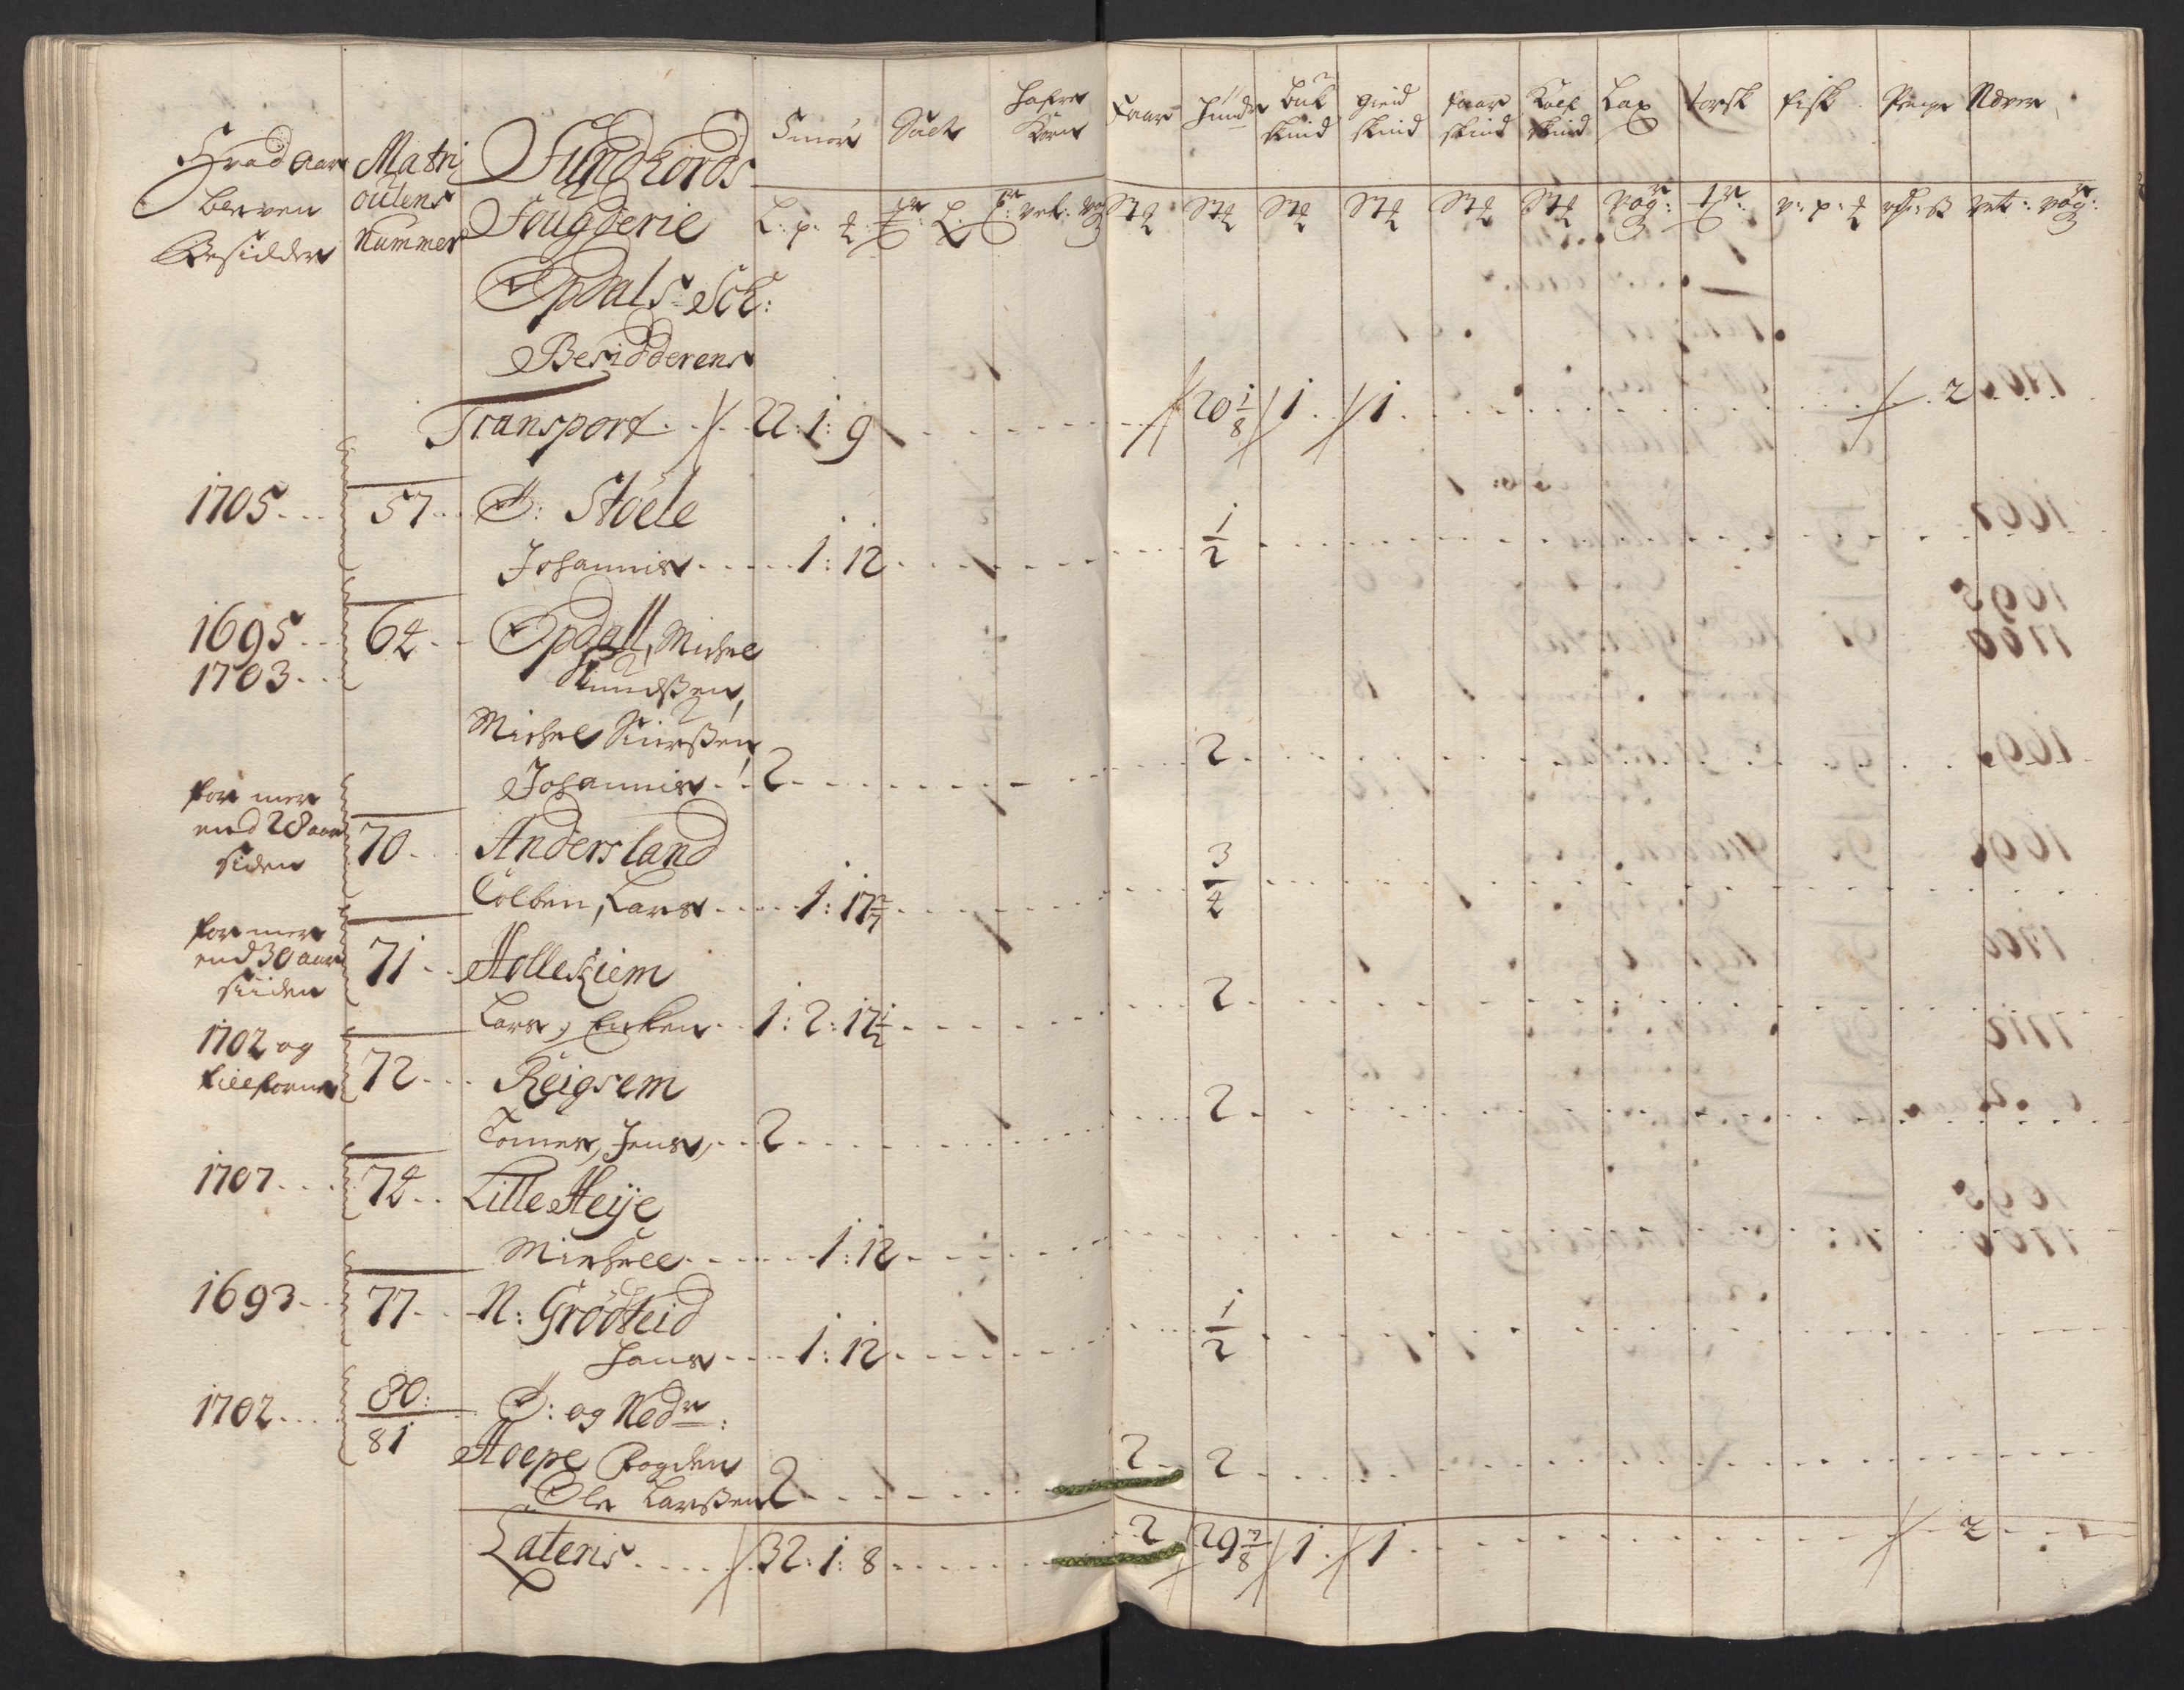 Hvad Aar
bleven
Besidder
Matri
culens
Nummer
Sundhords
Fougderie
Opdals Sch:
Besidderens
Smør
Salt
Hafre
Korn
Faar
Huuder
Buk
skind
gied
skind
faar
skind
Kalf
skind
Lax
torsk
fisk
Penge
Næver
L: p: ℔
Transport . . 22: 1: 9 20 1/8 1 1 2
1705 . . . 57 . . O: Støele
Johannis . . . . . 1: 12 . . . 1/2
1695 . . 64 . . Opdall, Michel
1703 . . Knudßen,
Michel Siurßen,
Johannis . . 2 . . . 2
for mer
end 28 aar
siden
70 . . Andersland
Colben, Lars . . . . 1: 17 2/7 . . . 3/4
for mer
end 30 aar
siiden
71 . . Hollekiem
Lars, Enken . . 1: 2: 17 1/2 . . . 2
1702 og
tilforne
72 . . . Reigsem
Tomes, Jens, . . 2 . . . 2
1707 . . . 74 . . Lille Heije
Michell . . . . . 1: 12 . . .
1693 . . 77 . . N: Grødheid
Hans . . . . 1: 12 . . . 1/2
1702 . . . 80:
81
O: og Nedr:
Hoepe, fogden
Ole Larßen 2 . . . 2 2
Lateris . . . . 32: 1: 8 . . . 2 29 7/8 1 1 2